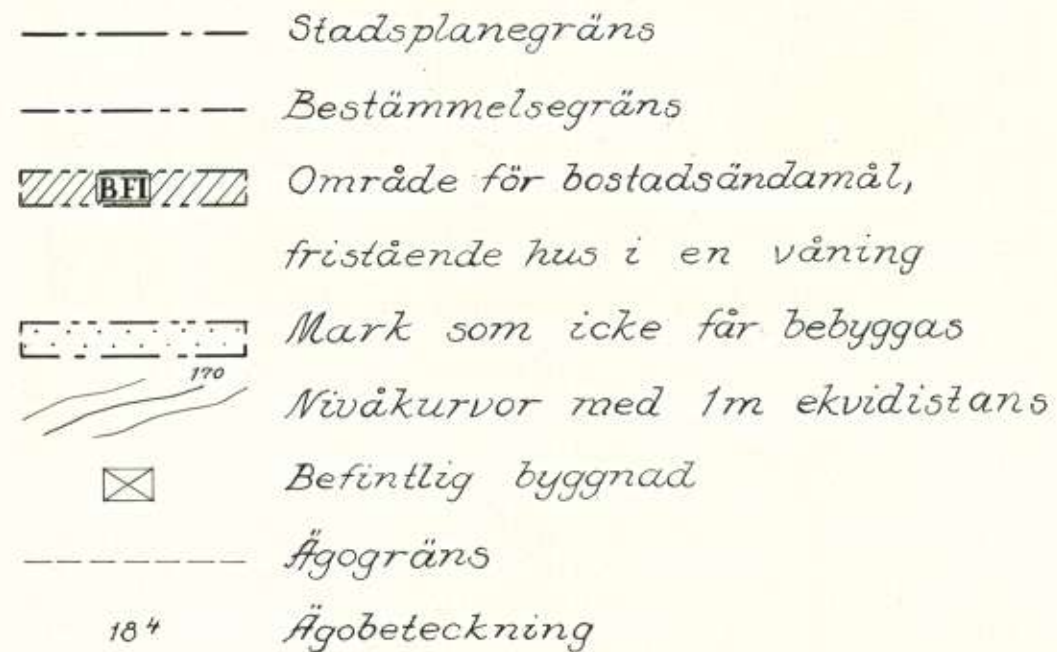 Stadsplanegräns
Bestämmelsegräns
BFI Område för bostadsändamål,
fristående hus i en våning
Mark som icke får bebyggas
170
Nivåkurvor med 1m ekvidistans
Befintlig byggnad
Ägogräns
18⁴ Ägobeteckning